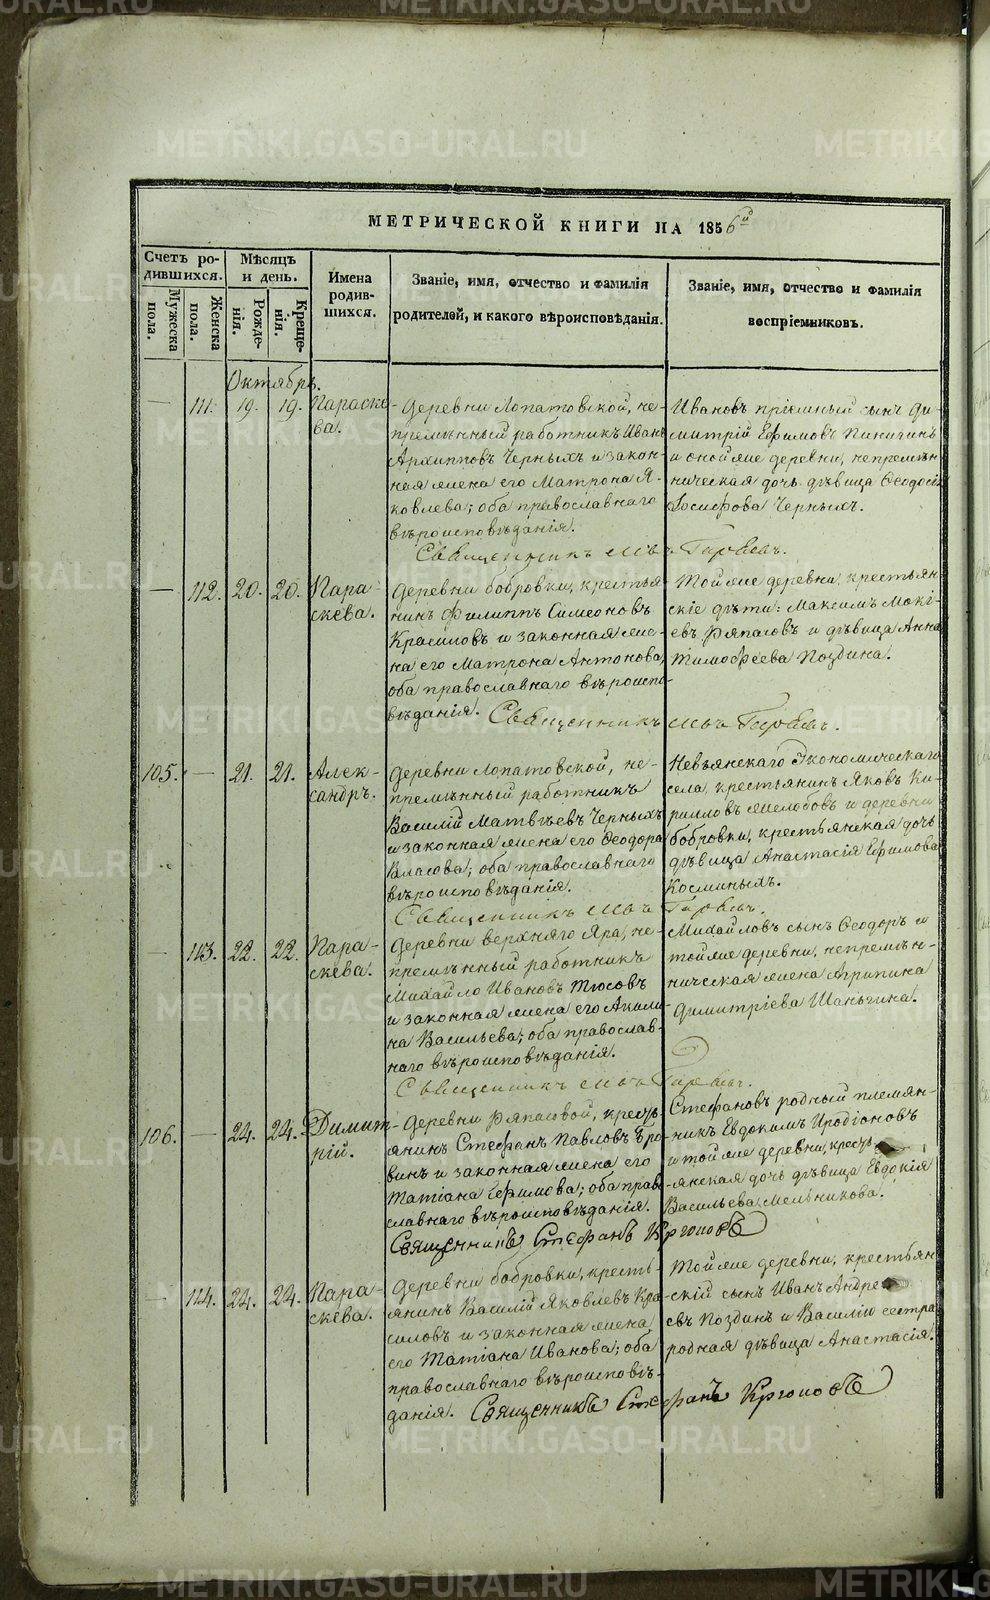 METRIKI.GASO-URAL.RU
МЕТРИЧЕСКОЙ КНИГИ НА 1856й
Счетъ родившихся.
Мужеска пола.
Женска пола.
Мѣсяцъ и день.
Рожденія.
Крещенія.
Имена родившихся.
Званіе, имя, отчество и фамилія
родителей, и какого вѣроисповѣданія.
Званіе, имя, отчество и фамилія
воспріемниковъ.
Октябрь.
— 111. 19. 19. Параске-
ва.
Деревни Лопатовской, не-
премѣнный работникъ Иванъ
Архипповъ Черныхъ и закон-
ная жена его Матрона Я-
ковлева; оба православнаго
вѣроисповѣданія.
Ивановъ пріемный сынъ Ди-
митрій Ефимовъ
и оной же деревни, непремѣн-
ническая дочь дѣвица Ѳеодосія
Іосифова Черныхъ.
Священникъ
— 112. 20. 20. Пара-
скева.
Деревни Бобровки, крестья-
нинъ Филиппъ Симеоновъ
Красиловъ и законная же-
на его Матрона Антонова,
оба православнаго вѣроиспо-
вѣданія.
Той же деревни, крестьян-
скіе дѣти: Максимъ Мокі-
евъ Ряпасовъ и дѣвица Анна
Тимоѳеева Поздина.
Священникъ
105. — 21. 21. Алек-
сандръ.
Деревни Лопатовской, не-
премѣнный работникъ
Василій Матвѣевъ Черныхъ
и законная жена его Ѳеодора
Власова; оба православнаго
вѣроисповѣданія.
Невьянскаго Экономическаго
села, крестьянинъ Яковъ Ки-
рилловъ Желобовъ и деревни
Бобровки, крестьянская дочь
дѣвица Анастасія Ефимова
Косминыхъ.
Священникъ
— 113. 22. 22. Пара-
скева.
Деревни Верхняго Яра, не-
премѣнный работникъ
Михайло Ивановъ Тюсовъ
и законная жена его Акили-
на Васильева; оба православ-
наго вѣроисповѣданія.
Михайловъ сынъ Ѳеодоръ и
той же деревни, непремѣн-
ническая жена Агрипина
Димитріева Шаньгина.
Священникъ
106. — 24. 24. Димит-
рій.
Деревни Ряпасовой, кресть-
янинъ Стефанъ Павловъ Бро-
винъ и законная жена его
Татіана Ефимова; оба право-
славнаго вѣроисповѣданія.
Стефановъ родный племян-
никъ Евдокимъ Иродіоновъ
и той же деревни, кресть-
янская дочь дѣвица Евдокія
Васильева Мельникова.
Священникъ Стефанъ
— 114. 24. 24. Пара-
скева.
Деревни Бобровки, кресть-
янинъ Василій Яковлевъ Кра-
силовъ и законная жена
его Татіана Иванова; оба
православнаго вѣроисповѣ-
данія.
Той же деревни, крестьян-
скій сынъ Иванъ Андре-
евъ Поздинъ и Василію сестра
родная дѣвица Анастасія.
Священникъ Стефанъ